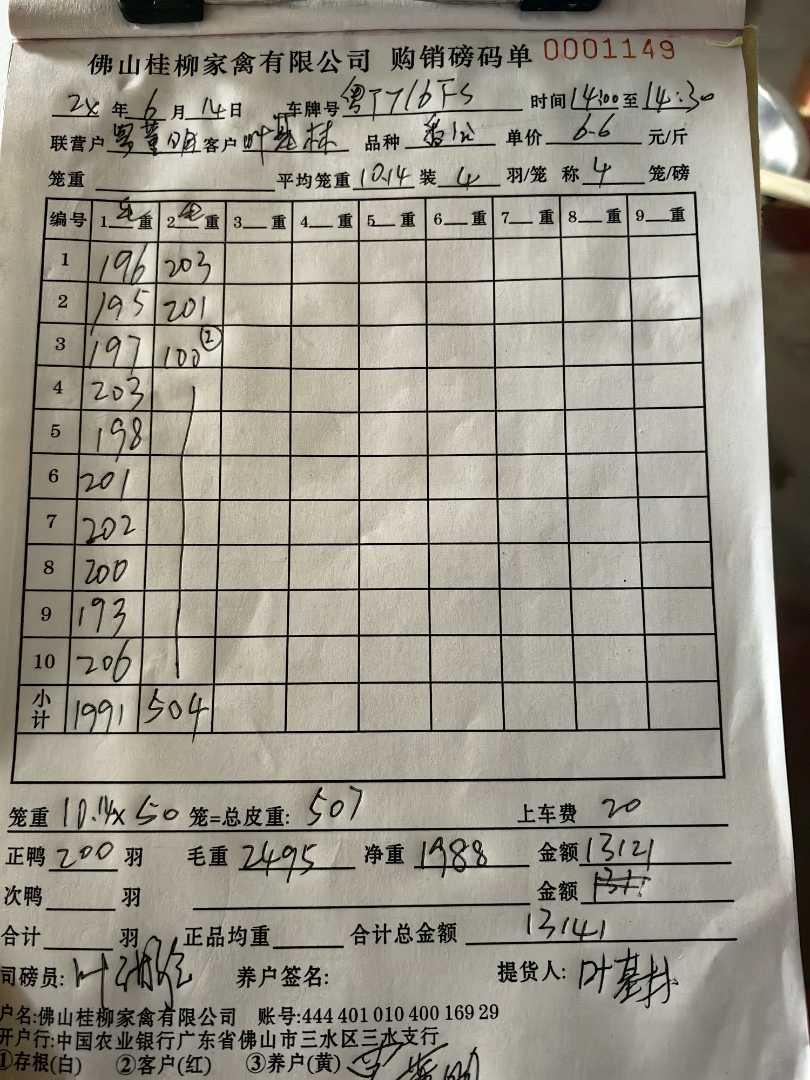 佛山桂柳家禽有限公司 购销磅码单 0001149
24 年 6 月 14 日 车牌号 粤T716FS 时间 14:00 至 14:30
联营户 客户 叶基林 品种 单价 6.6 元/斤
笼重 平均笼重 10.14 装 4 羽/笼 称 4 笼/磅
编号 1 毛 重 2 毛 重 3 重 4 重 5 重 6 重 7 重 8 重 9 重
1 196 203
2 195 201
3 197 100 ②
4 203
5 198
6 201
7 202
8 200
9 193
10 206
小计 1991 504
笼重 10.14×50 笼=总皮重: 507 上车费 20
正鸭 200 羽 毛重 2495 净重 1988 金额 13121
次鸭 羽 金额
合计 羽 正品均重 合计总金额 13141
司磅员: 养户签名: 提货人: 叶基林
户名:佛山桂柳家禽有限公司 账号:444 401 010 400 169 29
开户行:中国农业银行广东省佛山市三水区三水支行
①存根(白) ②客户(红) ③养户(黄)